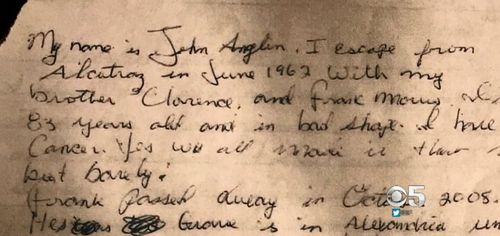 My name is John Anglin. I escape from
Alcatraz in June 1962 With my
brother Clarence, and Frank Morris. I
83 years old and in bad shape. I have
Cancer. Yes we all made it that
but barely!
Frank passed away in Octo 2005.
Hes Grave is in Alexandria un
5